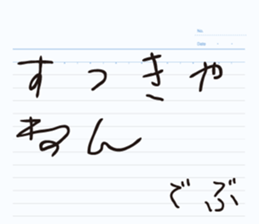 No.
Date
すっきゃ
ねん
でぶ